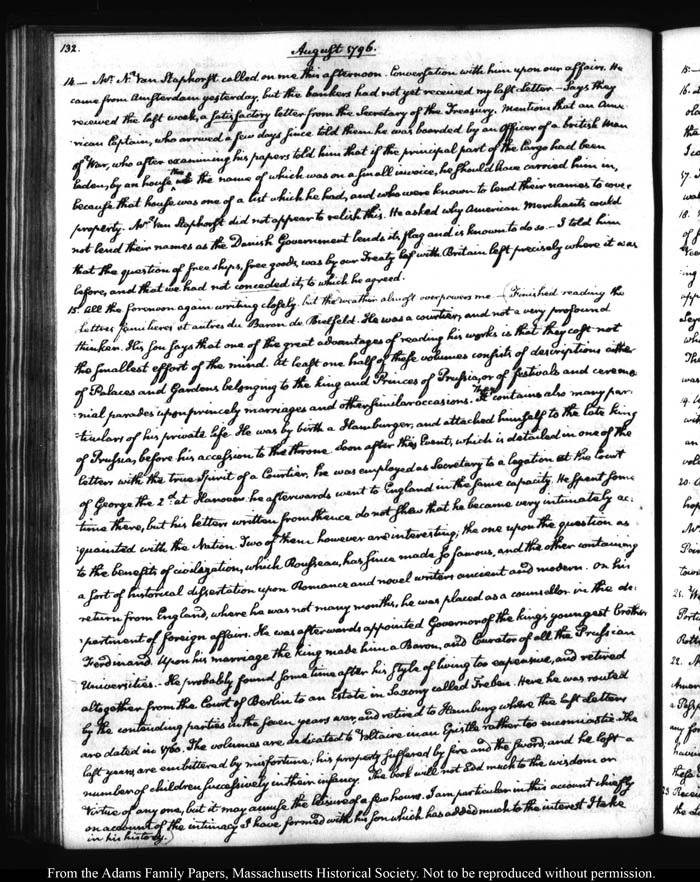 132.
August 1796.
14— Mr. N. Van Staphorst called on me this afternoon. Conversation with him upon our affairs. He
came from Amsterdam yesterday, but the bankers had not yet received my last letter — Says they
received the last week, a satisfactory letter from the Secretary of the Treasury. Mentions that an Ame-
rican Captain, who arrived a few days since told them he was boarded by an Officer of a british Man
of War, who after examining his papers told him that if the principal part of the Cargo had been
laden, by an house the name of which was on a small invoice, he should have carried him in,
because that house was one of a list which he had, and who were known to lend their names to cover
property. Mr. Van Staphorst did not appear to relish this. He asked why American Merchants could
not lend their names as the Danish Government lends its flag and is known to do so. — I told him
that the question of free ships, free goods, was by our Treaty with Britain left precisely where it was
before, and that we had not conceded it, to which he agreed.
15. All the forenoon again writing closely, but the weather almost overpowers me — (Finished reading the
Lettres familieres et autres du Baron de Bielfeld. He was a courtier, and not a very profound
thinker. His son says that one of the great advantages of reading his works is that they cost not
the smallest effort of the mind. At least one half of these volumes consists of descriptions either
of Palaces and Gardens, belonging to the king and Princes of Prussia, or of festivals and ceremo-
nial parades upon princely marriages and other similar occasions. It contains also many par-
ticulars of his private life. He was by birth a Hamburger, and attached himself to the late king
of Prussia, before his accession to the throne. Soon after this Event, which is detailed in one of the
letters with the true Spirit of a Courtier, he was employed as Secretary to a legation at the Court
of George the 2d. at Hanover. he afterwards went to England in the same capacity. He spent some
time there, but his letters written from thence do not shew that he became very intimately ac-
quainted with the Nation. Two of them however are interesting; the one upon the question as
to the benefits of civilization, which Rousseau, has since made so famous, and the other containing
a sort of historical dissertation upon Romance and novel writers ancient and modern. On his
return from England, where he was not many months, he was placed as a counsellor in the de-
partment of foreign affairs. He was afterwards appointed Governor of the king's youngest brother
Ferdinand. Upon his marriage the king made him a Baron, and Curator of all the Prussian
Universities. — He probably found some time after his style of living too expensive, and retired
altogether from the Court of Berlin to an Estate in Saxony called Treben. Here he was routed
by the contending parties in the seven years war, and retired to Hamburg where the last letters
are dated in 1760. The volumes are dedicated to Voltaire in an Epistle rather too encomiastic. The
last years, are embittered by misfortune; his property suffered by fire and the sword, and he lost a
number of children successively in their infancy. The book will not add much to the wisdom or
virtue of any one, but it may amuse the leisure of a few hours. I am particular in this account chiefly
on account of the intimacy I have formed with his son which has added much to the interest I take
in his history.)
From the Adams Family Papers, Massachusetts Historical Society. Not to be reproduced without permission.